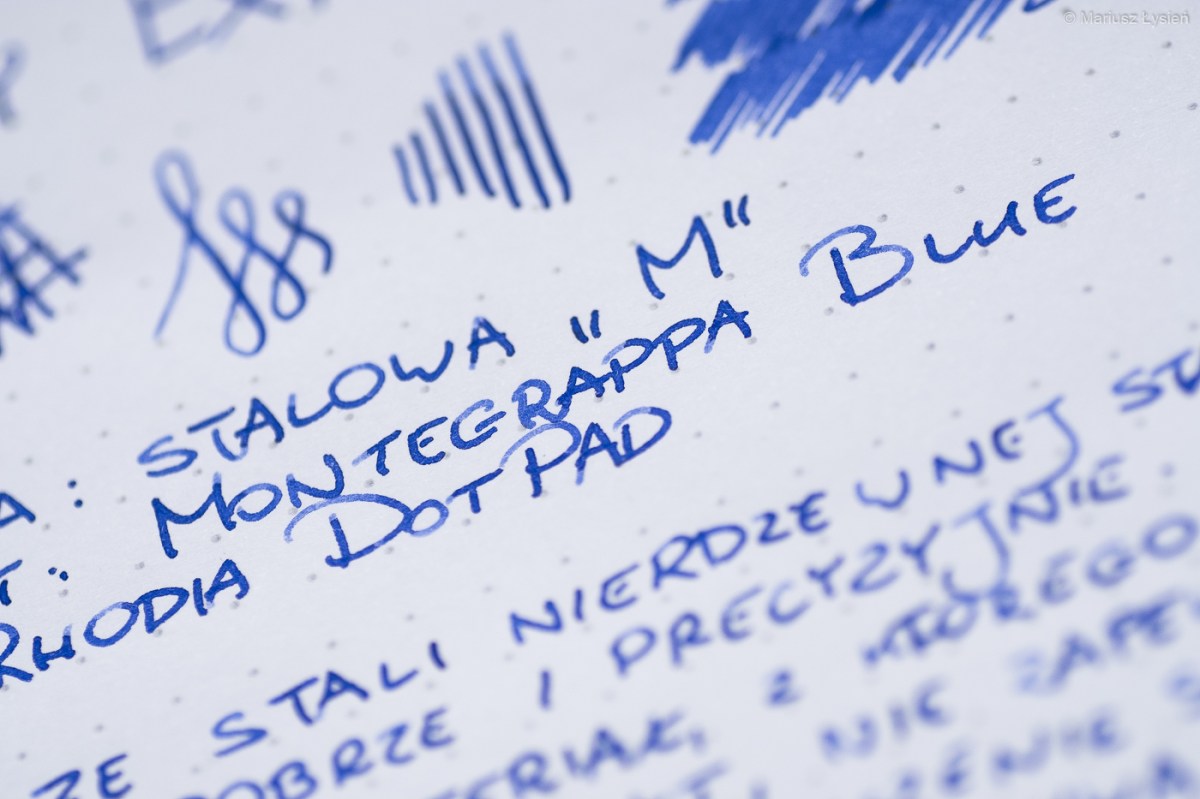 © Mariusz Łysień
A: STALOWA "M"
T: MONTEGRAPPA BLUE
RHODIA DOTPAD
ZE STALI NIERDZEWNEJ
DOBRZE I PRECYZYJNIE.
Z KTÓREGO
NIE